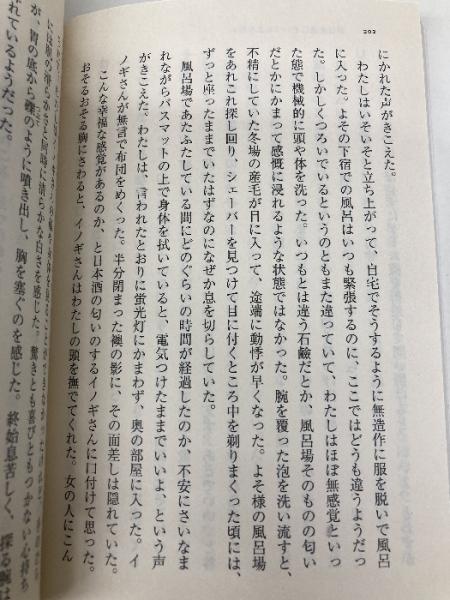 202
にかれた声がきこえた。
わたしはいそいそと立ち上がって、自宅でそうするように無造作に服を脱いで風呂
に入った。よその下宿での風呂はいつも緊張するのに、ここではどうも違うようだっ
た。しかしくつろいでいるというのともまた違っていて、わたしはほぼ無感覚といっ
た態で機械的に頭や体を洗った。いつもとは違う石鹸だとか、風呂場そのものの匂い
だとかにかまって感慨に浸れるような状態ではなかった。腕を覆った泡を洗い流すと、
不精にしていた冬場の産毛が目に入って、途端に動悸が早くなった。よそ様の風呂場
をあれこれ探し回り、シェーバーを見つけて目に付くところ中を剃りまくった頃には、
ずっと座ったままでいたはずなのになぜか息を切らしていた。
風呂場であたふたしている間にどのぐらいの時間が経過したのか、不安にさいなま
れながらバスマットの上で身体を拭いていると、電気つけたままでいいよ、という声
がきこえた。わたしは、言われたとおりに蛍光灯にかまわず、奥の部屋に入った。イ
ノギさんが無言で布団をめくった。半分閉まった襖の影に、その面差しは隠れていた。
こんな幸福な感覚があるのか、と日本酒の匂いのするイノギさんに口付けて思った。
おそるおそる胸にさわると、イノギさんはわたしの頭を撫でてくれた。女の人にこん
には腹の滑らかさと同時に、清らかな白さを感じた。驚きとも喜びともつかない心持ち
が、胃の底から礫のように噴き出し、胸を塞ぐのを感じた。終始息苦しく、探る腕は
れているようだった。